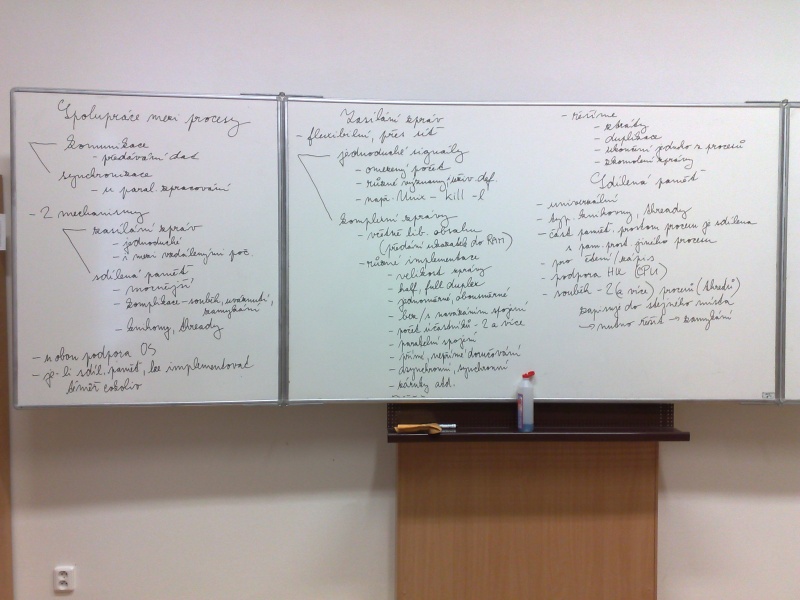 Spolupráce mezi procesy
komunikace
- předávání dat
synchronizace
- u paral. zpracování
- 2 mechanismy
zasílání zpráv
- jednoduché
- i mezi vzdálenými poč.
sdílená paměť
- mocnější
- komplikace - souběh, uváznutí,
zamykání
- knihovny, thready
- nutnou podpora OS
- je-li sdíl. paměť, lze implementovat
téměř cokoliv
Zasílání zpráv
- flexibilní, přes síť
jednoduché signály
- omezený počet
- různé významy, univ. def.
- např. Unix - kill -l
komplexní zprávy
- většině lib. obsahu
(předání ukazatelů do RAM)
- různé implementace
- velikost zprávy
- half, full duplex
- jednosměrné, obousměrné
- bez/s navázáním spojení
- počet účastníků - 2 a více
- paralelní spojení
- přímé, nepřímé doručování
- asynchronní, synchronní
- záruky atd.
- řešíme
- ztráty
- duplikace
- ukončení jednoho z procesů
- zkomolení zprávy
Sdílená paměť
- univerzální
- typ. knihovny, thready
- část paměť. prostoru procesu je sdílena
s pam. prost. jiného procesu
- pro čtení/zápis
- podpora HW (CPU)
- souběh - 2 (a více) procesů (threadů)
zapisuje do stejného místa
→ nutno řešit → zamykání